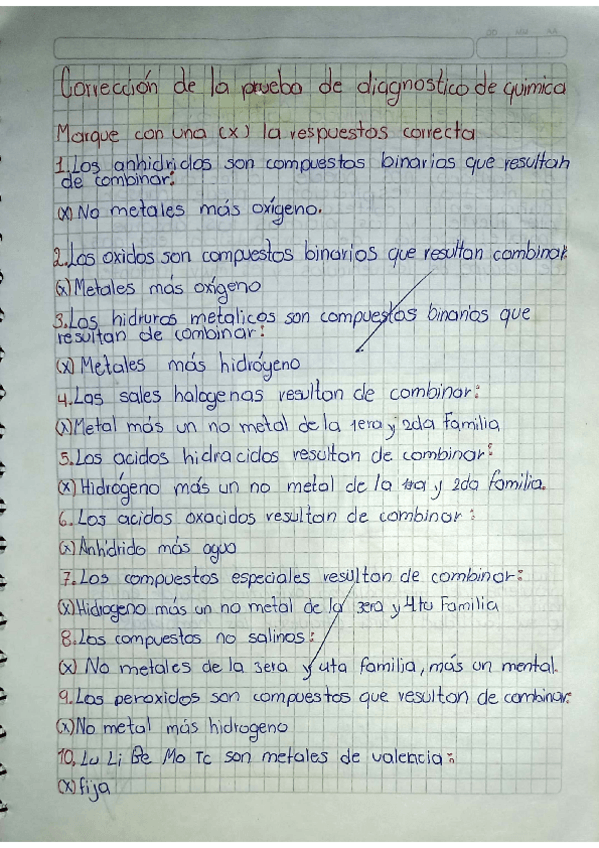 Corrección de la prueba de diagnostico de quimica
Marque con una (x) la respuestos correcta
1. Los anhidridos son compuestos binarios que resultan
de combinar:
(x) No metales más oxígeno.
2. Los oxidos son compuestos binarios que resultan combinar
(x) Metales más oxígeno
3. Los hidruros metalicos son compuestos binarios que
resultan de combinar:
(x) Metales más hidrógeno
4. Las sales halogenas resultan de combinar:
(x) Metal más un no metal de la 1era y 2da Familia
5. Los acidos hidracidos resultan de combinar:
(x) Hidrógeno más un no metal de la 1ra y 2da familia.
6. Los acidos oxacidos resultan de combinar:
(x) Anhidrido más agua
7. Los compuestos especiales resulton de combinar:
(x) Hidrogeno más un no metal de la 3era y 4ta Familia
8. Los compuestos no salinos:
(x) No metales de la 3era y 4ta familia, más un mental.
9. Los peroxidos son compuestos que resultan de combinar:
(x) No metal más hidrogeno
10. Lu Li Be Mo Tc son metales de valencia:
(x) fija